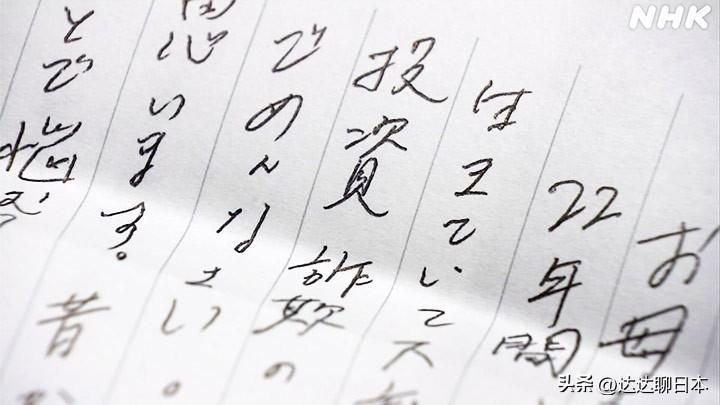 お母
22年間
は
ていて
投資詐欺の
ごめんなさい。
思います。昔
とで悩
NHK
头条 @达达聊日本